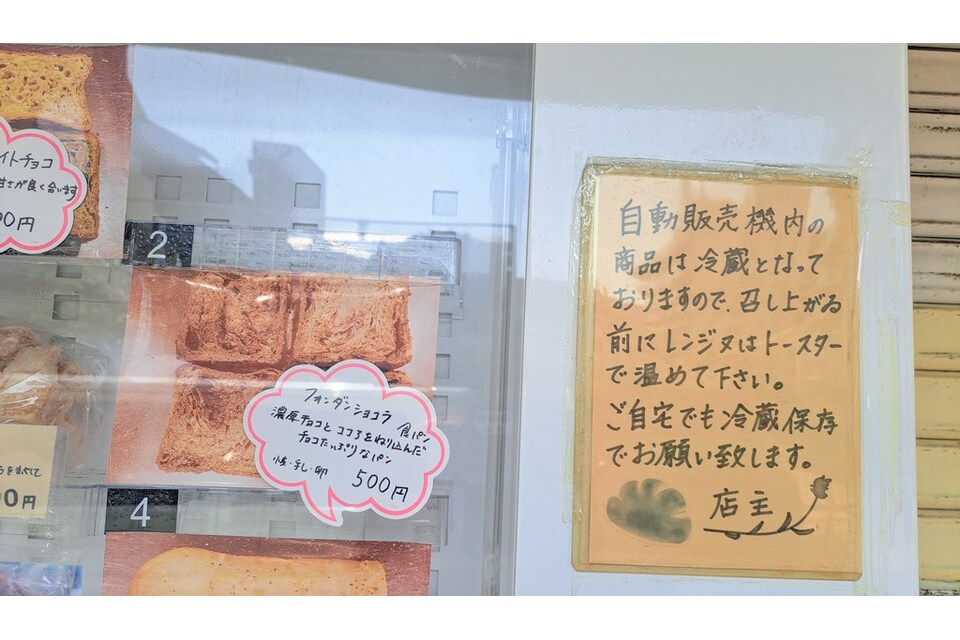 イトチョコ
甘さが良く合います
00円
2
フォンダンショコラ 食パン
濃厚チョコとココアをねり込んだ
チョコたっぷりなパン
乳・卵
500円
4
0円
自動販売機内の
商品は冷蔵となって
おりますので、召し上がる
前にレンジ又はトースター
で温めて下さい。
ご自宅でも冷蔵保存
でお願い致します。
店主